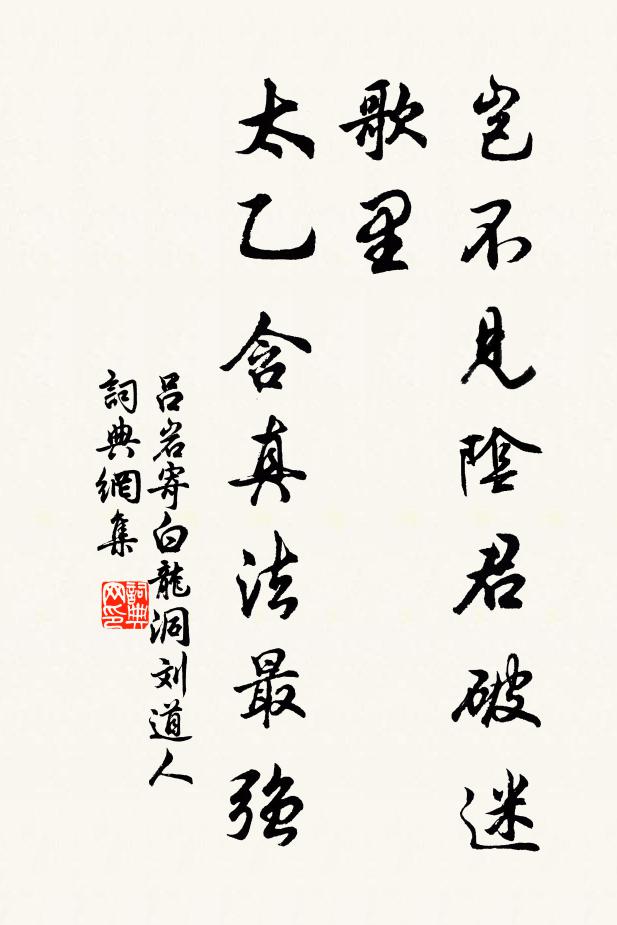 豈不見陰君破迷
歌里
太乙含真法最強
吕岩寄白龍洞刘道人
詞典網集
詞典网印